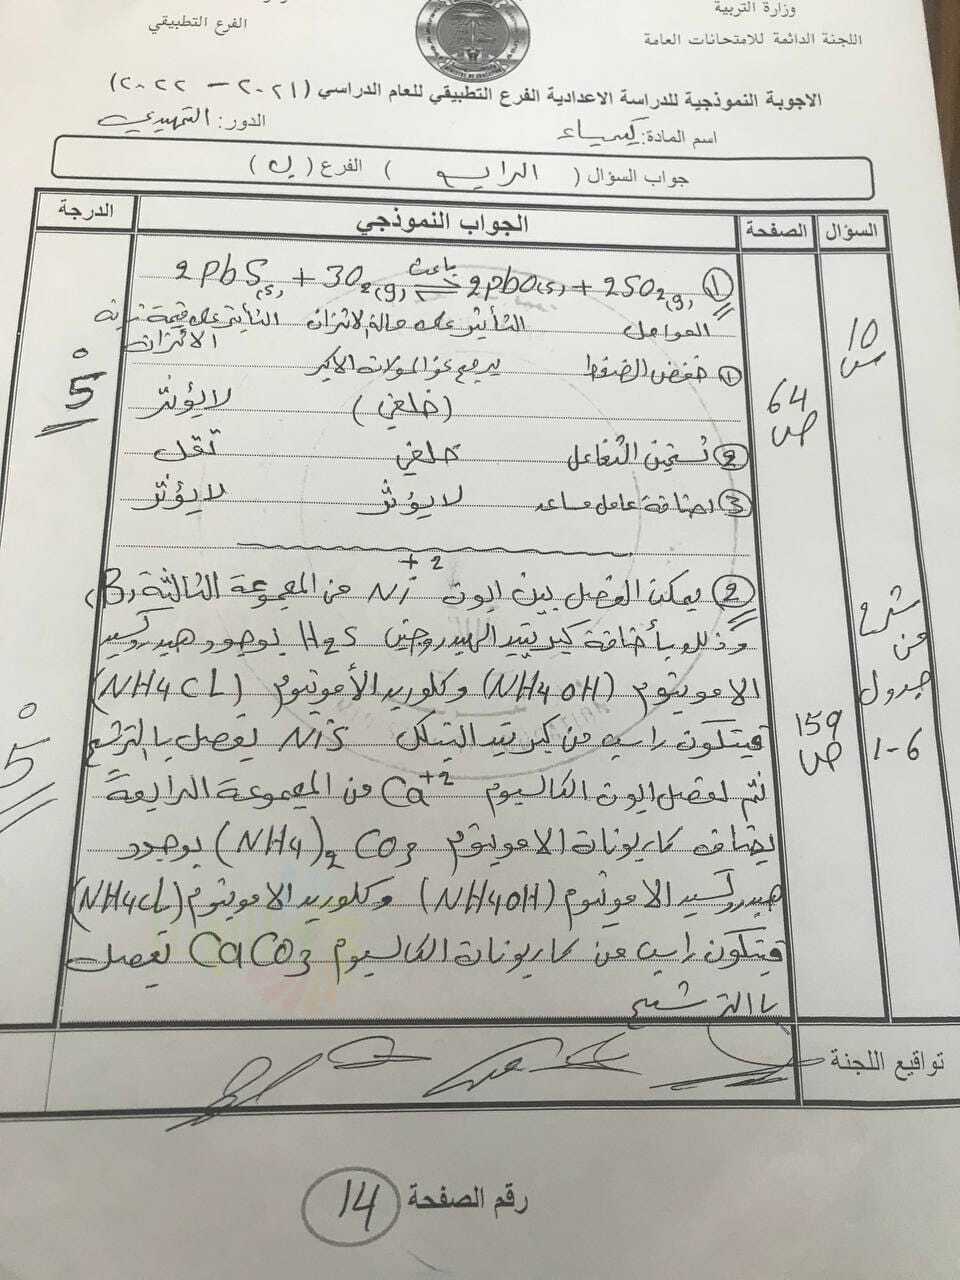 وزارة التربية
اللجنة الدائمة للامتحانات العامة
الفرع التطبيقي
الاجوبة النموذجية للدراسة الاعدادية الفرع التطبيقي للعام الدراسي (٢٠٢١ - ٢٠٢٢)
اسم المادة: كيمياء الدور: التمهيدي
جواب السؤال ( الرابع ) الفرع ( ب )
السؤال الصفحة الجواب النموذجي الدرجة
① 2PbS(s) + 3O2(g) ⇌ باعث 2PbO(s) + 2SO2(g)
العوامل التأثير على حالة الاتزان التأثير على قيمة ثابت الاتزان
① خفض الضغط يرجع نحو المولات الاكبر
(خلفي) لا يؤثر
② تسخين التفاعل خلفي تقل
③ اضافة عامل مساعد لا يؤثر لا يؤثر
10 س
64 ص
5
② يمكن الفصل بين ايون Ni+2 من المجموعة الثالثة B
وذلك بأضافة كبريتيد الهيدروجين H2S بوجود هيدروكسيد
الامونيوم (NH4OH) وكلوريد الأمونيوم (NH4CL)
فيتكون راسب من كبريتيد النيكل NiS يفصل بالترشيح
ثم لفصل ايون الكالسيوم Ca+2 من المجموعة الرابعة
يضاف كاربونات الامونيوم (NH4)2CO3 بوجود
هيدروكسيد الامونيوم (NH4OH) وكلوريد الامونيوم (NH4CL)
فيتكون راسب من كاربونات الكالسيوم CaCO3 تفصل
بالترشيح
شرح
من
جدول
6-1
159 ص
5
تواقيع اللجنة
رقم الصفحة 14